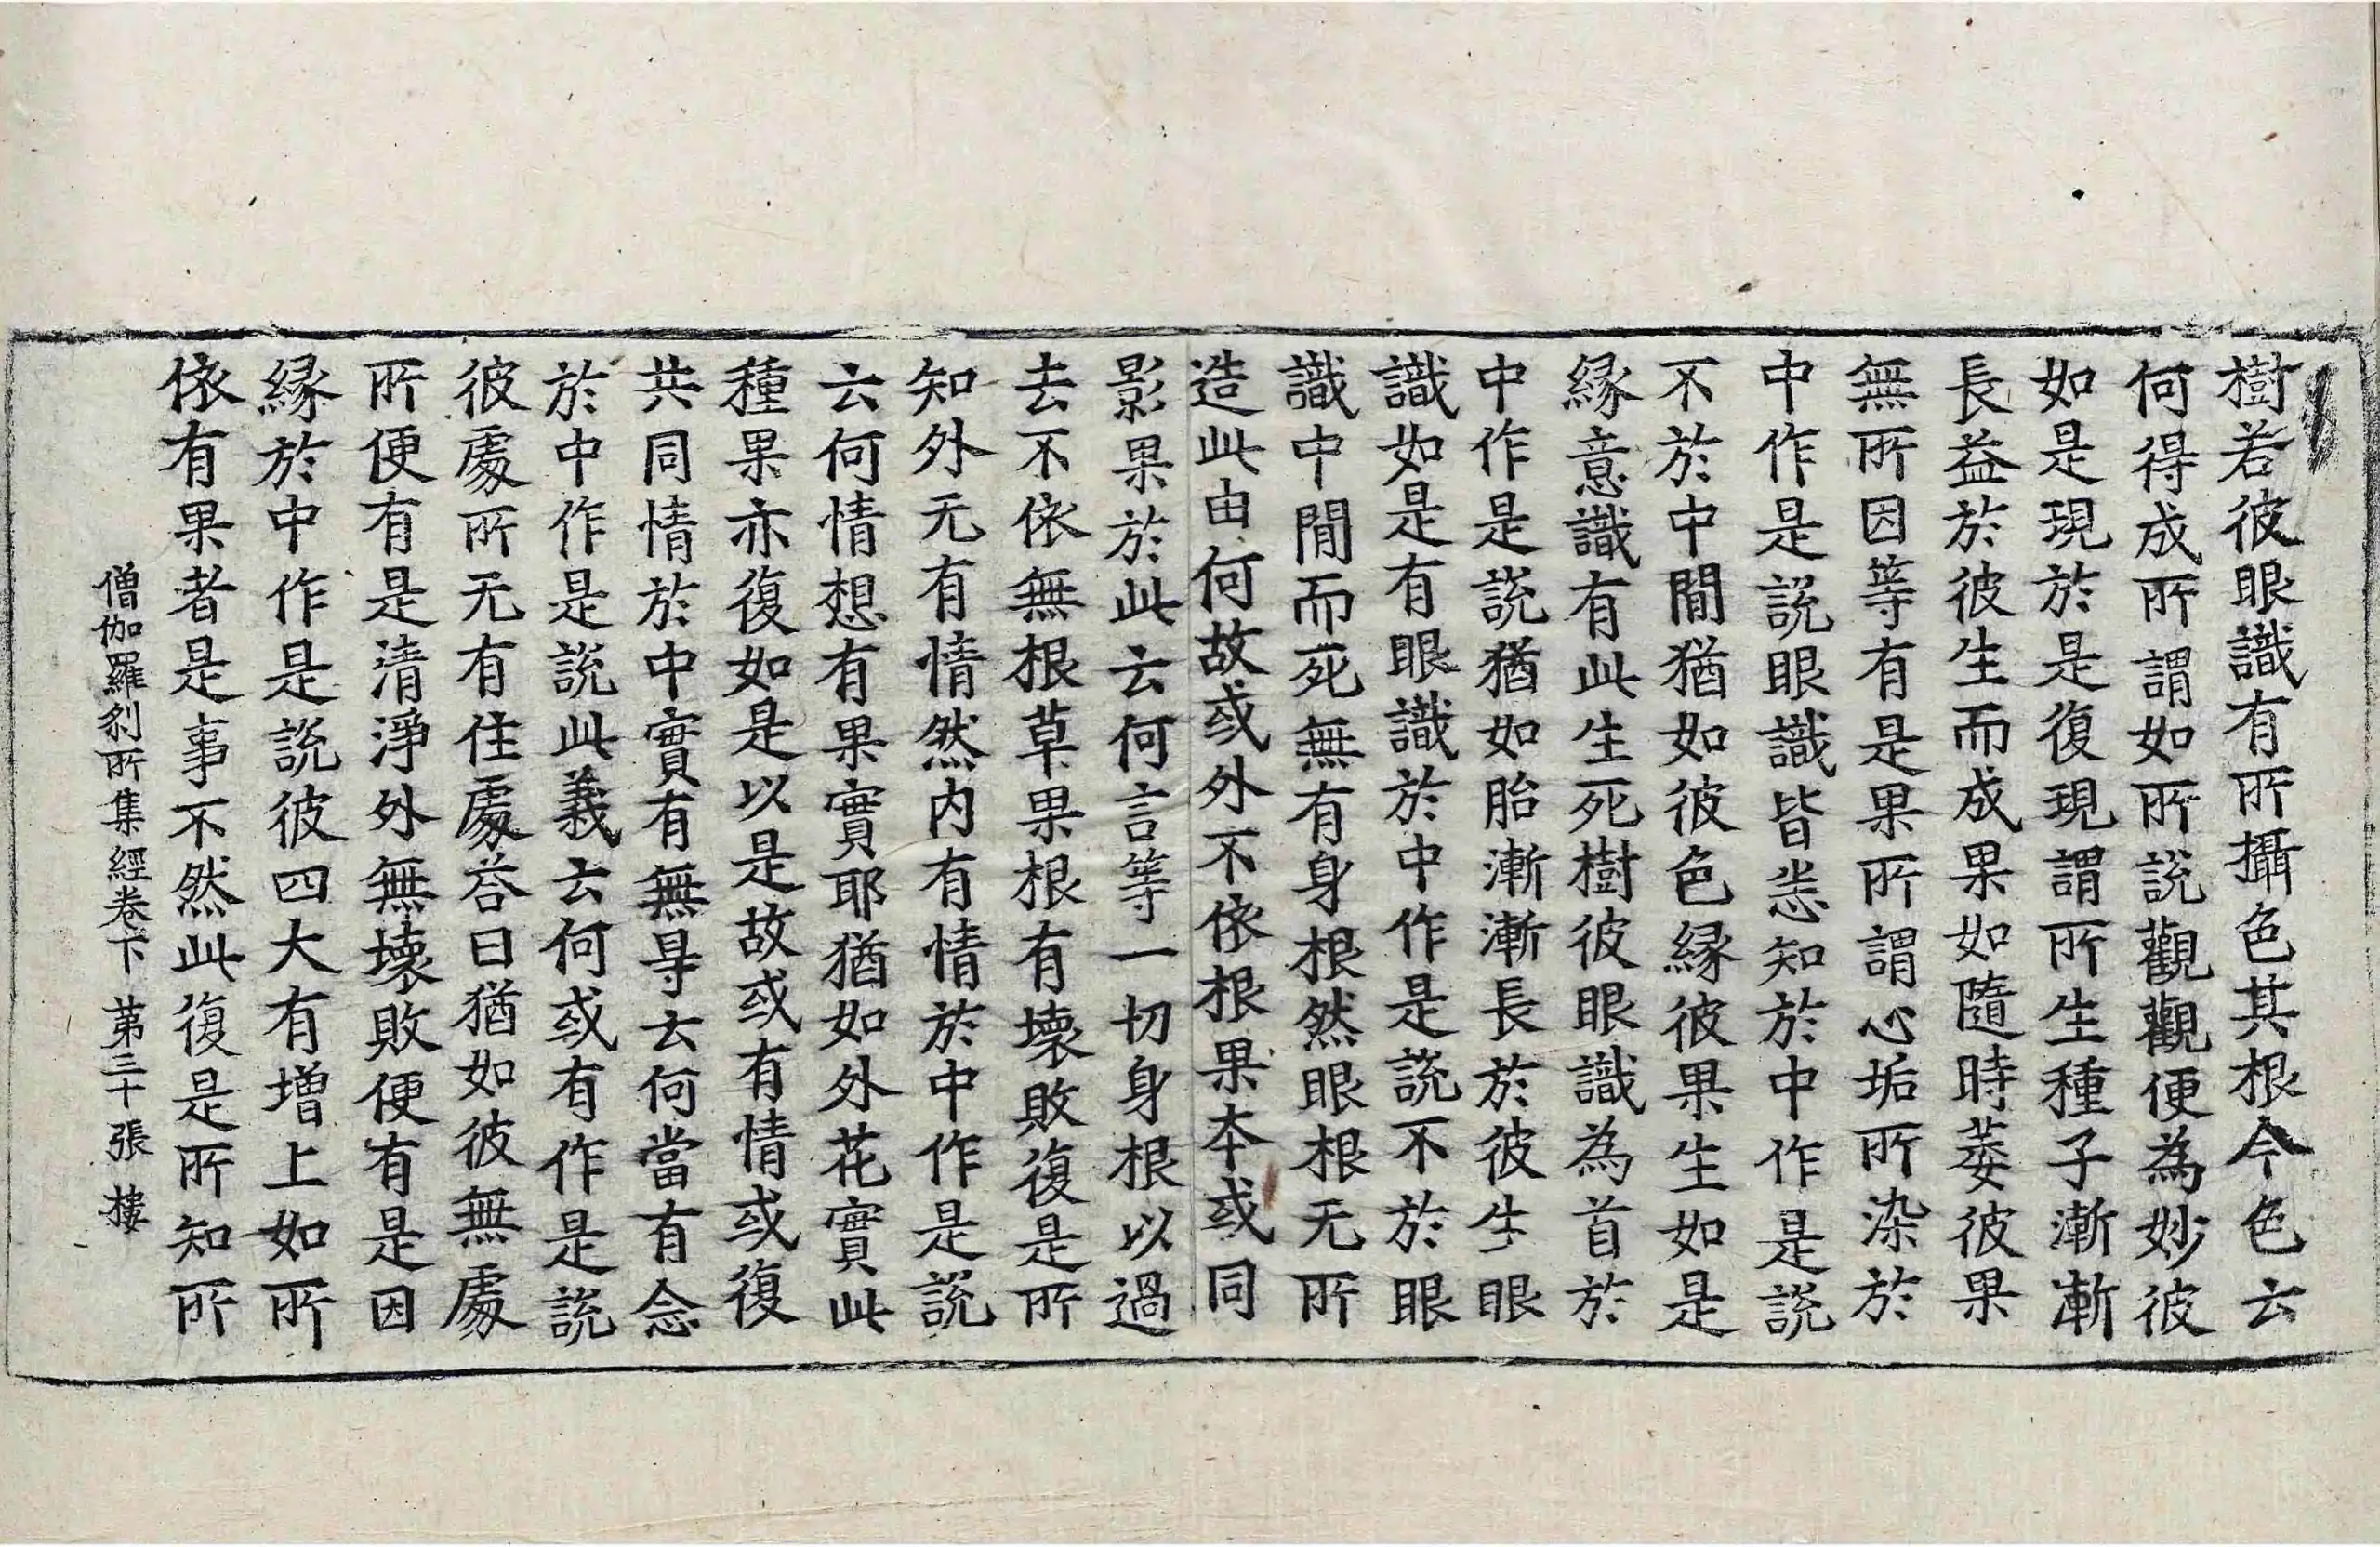 樹若彼眼識有所攝色其根今色云
何得成所謂如所說觀觀便為妙彼
如是現於是復現謂所生種子漸漸
長益於彼生而成果如隨時萎彼果
無所因等有是果所謂心垢所染於
中作是說眼識皆悉知於中作是說
不於中間猶如彼色緣彼果生如是
緣意識有此生死樹彼眼識為首於
中作是說猶如胎漸漸長於彼生眼
識如是有眼識於中作是說不於眼
識中間而死無有身根然眼根无所
造此由何故或外不依根果本或同
影果於此云何言等一切身根以過
去不依無根草果根有壞敗復是所
知外无有情然內有情於中作是說
云何情想有果實耶猶如外花實此
種果亦復如是以是故或有情或復
共同情於中實有無㝵云何當有念
於中作是說此義云何或有作是說
彼處所无有住處荅曰猶如彼無處
所便有是清淨外無壞敗便有是因
緣於中作是說彼四大有增上如所
依有果者是事不然此復是所知所
僧伽羅剎所集經卷下 第三十張 樓